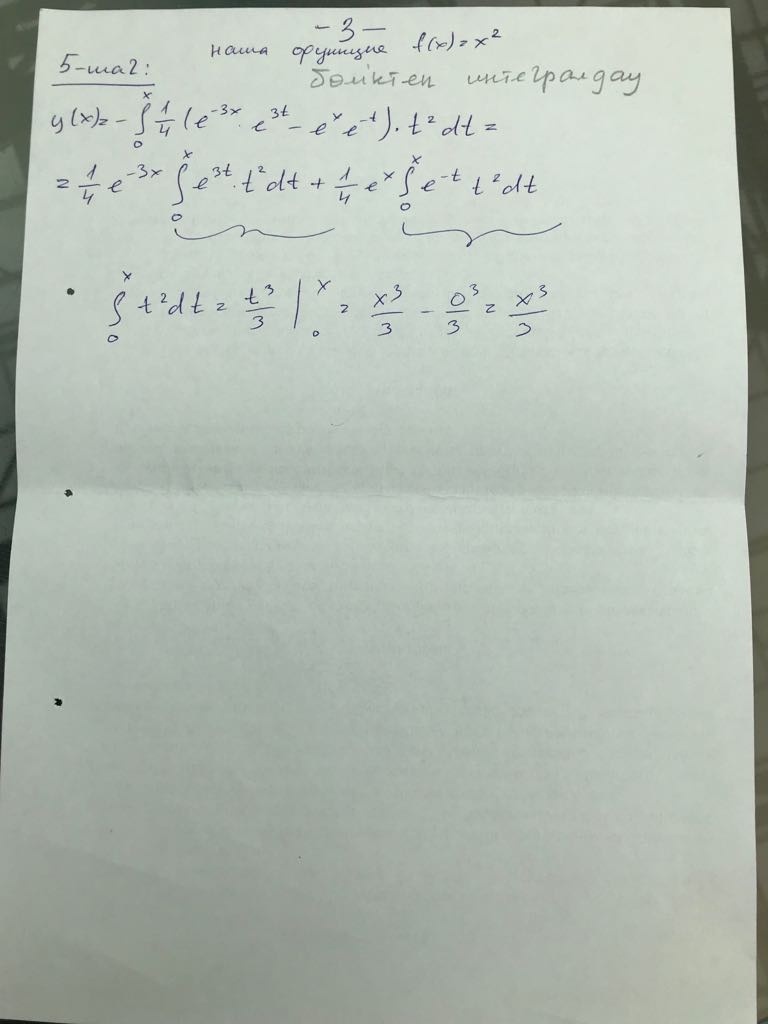 - 3 -
наша функция f(x) = x²
5-шаг: бөліктеп интегралдау
y(x) = - ∫₀ˣ 1/4 (e⁻³ˣ · e³ᵗ - eˣ e⁻ᵗ) · t² dt =
= 1/4 e⁻³ˣ ∫₀ˣ e³ᵗ · t² dt + 1/4 eˣ ∫₀ˣ e⁻ᵗ t² dt
∫₀ˣ t² dt = t³/3 |₀ˣ = x³/3 - 0³/3 = x³/3